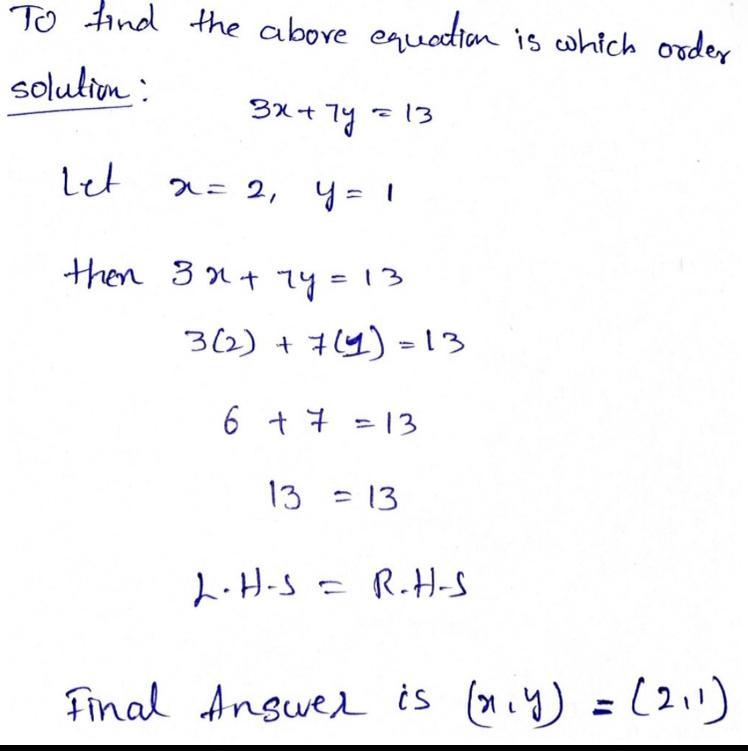 To find the above equation is which order
solution:
3x + 7y = 13
Let x = 2, y = 1
then 3x + 7y = 13
3(2) + 7(1) = 13
6 + 7 = 13
13 = 13
L.H-S = R.H-S
Final Answer is (x,y) = (2,1)